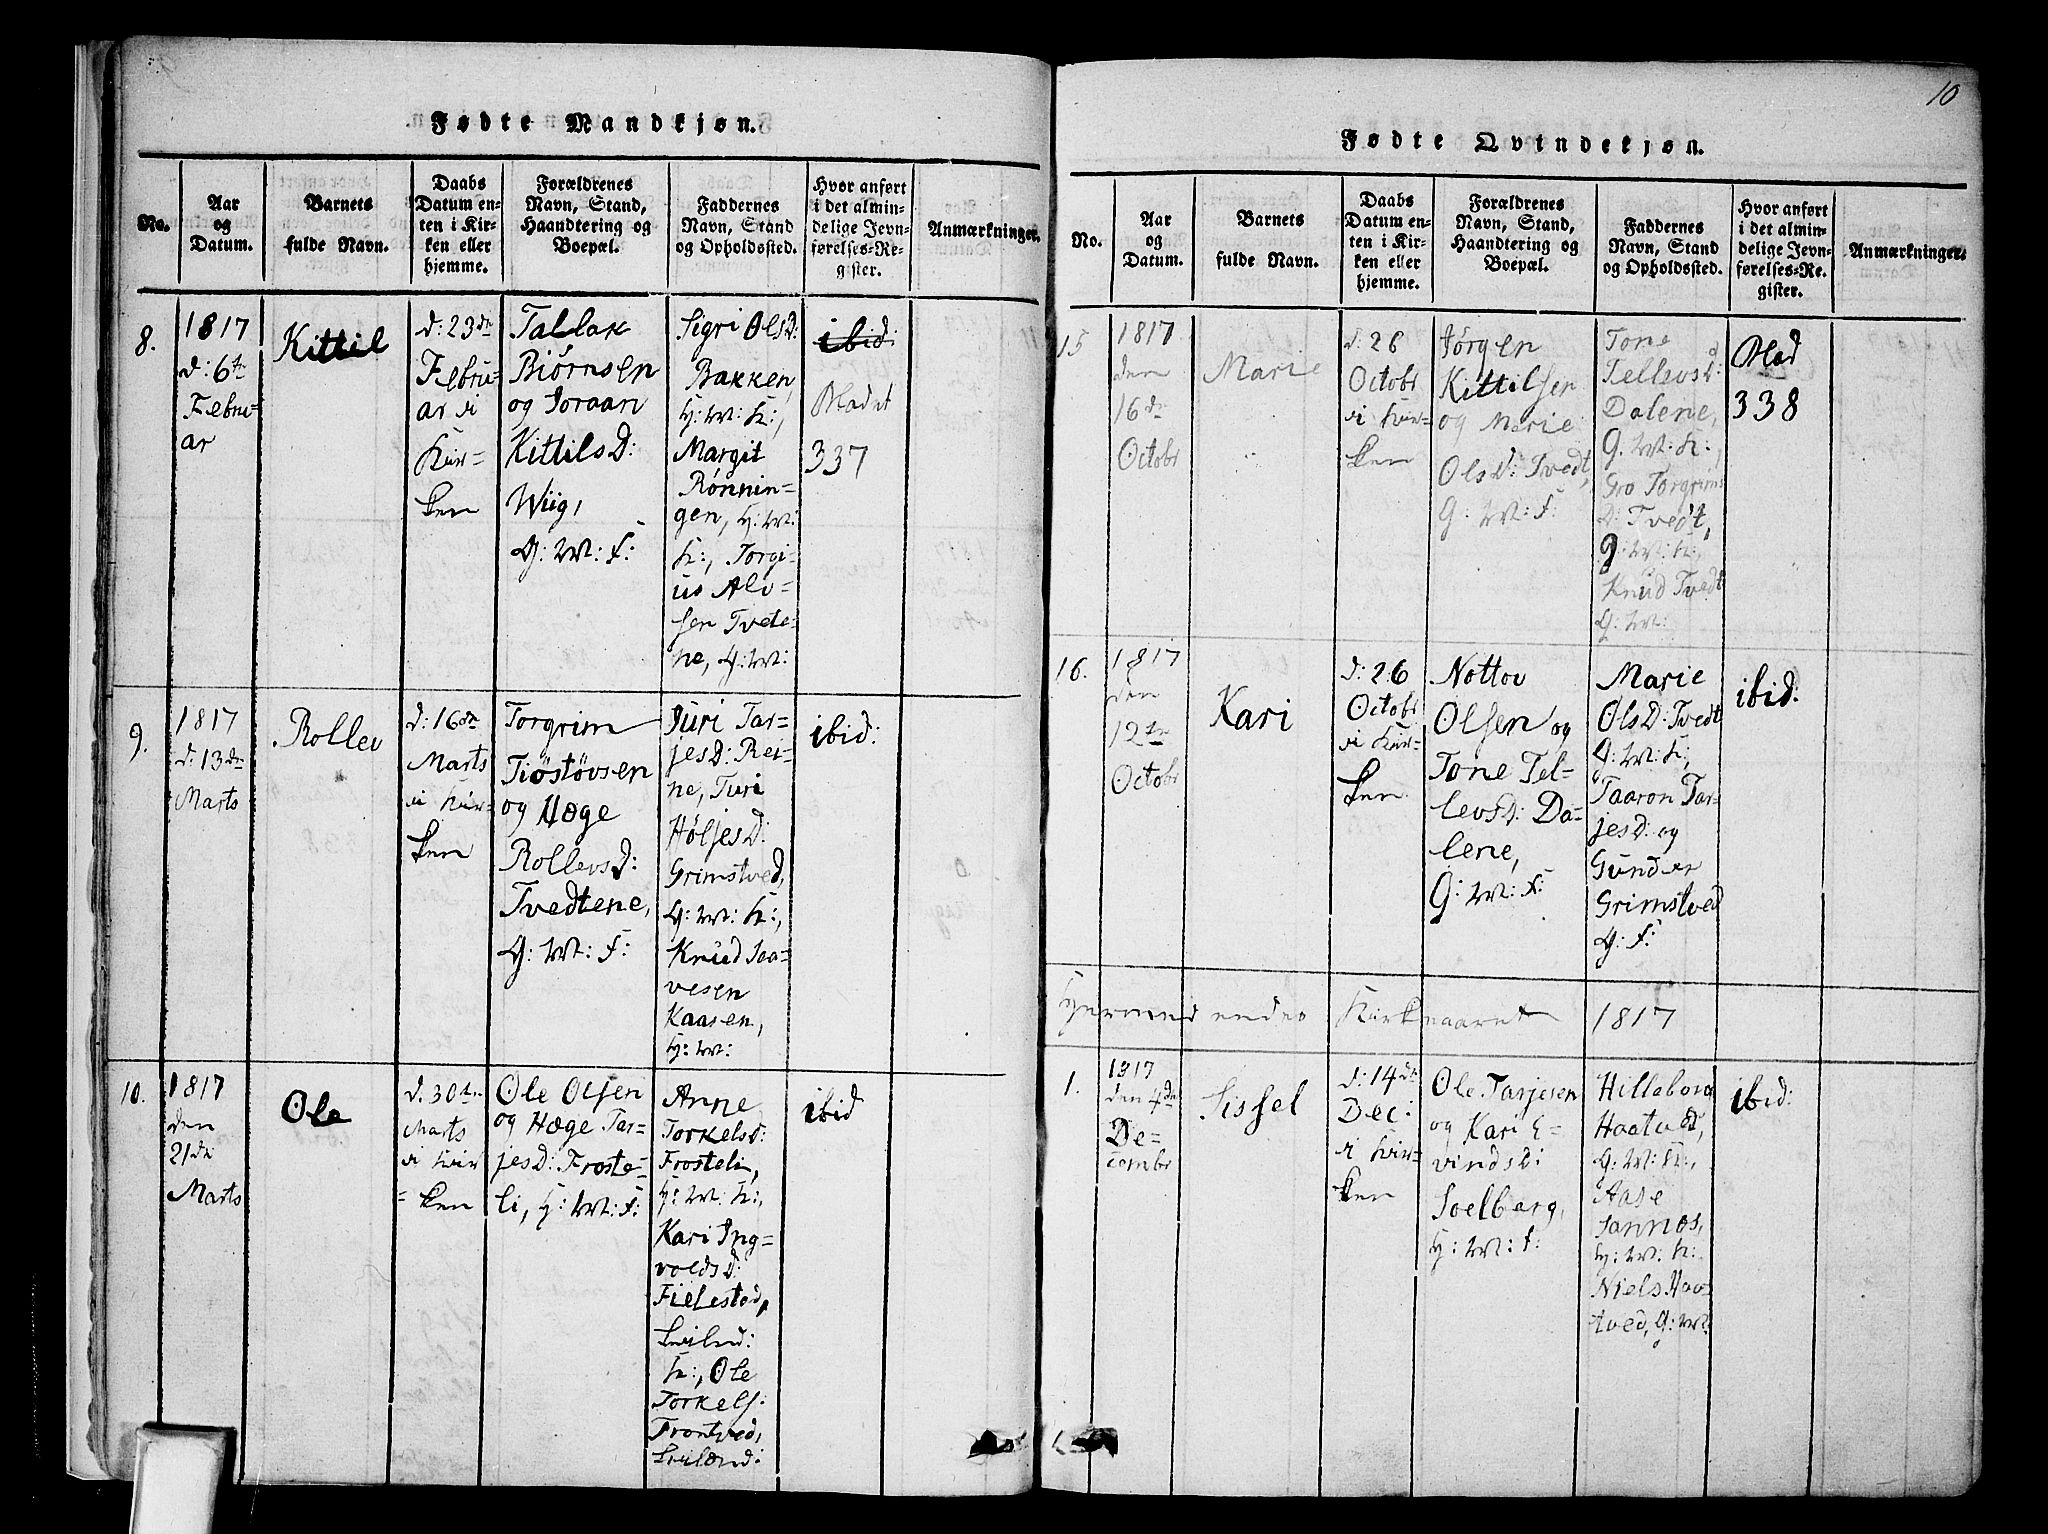 10
Fødte Mandkjøn.
No.
Aar
og
Datum.
Barnets
fulde Navn.
Daabs
Datum en-
ten i Kir-
ken eller
hjemme.
Forældrenes
Navn, Stand,
Haandtering og
Boepæl.
Faddernes
Navn, Stand
og Opholdssted.
Hvor anført
i det almin-
delige Jevn-
førelses-Re-
gister.
Anmærkninger.
8.
1817
d: 6te
Febru-
ar
Kittil
d: 23de
Febru-
ar i
Kir-
ken
Tallak
Biørnsen
og Joraan
KittilsD:
Wiig,
G: M: F:
Sigri OlsD:
Bakken,
H: M: K:,
Margit
Rønnin-
gen, H: M:
K:, Torgi-
us Alv-
sen Tvete-
ne, G: M:
ibid:
Bladet
337
9.
1817
d: 13de
Marts
Rollev
d: 16de
Marts
i Kir-
ken
Torgrim
Tiøstøvsen
og Hæge
RollevsD:
Tvedtene,
G: M: F:
Juri Tar-
jesD: Rei-
ne, Turi
HøljesD:
Grimstved,
G: M: K:,
Knud Saa-
vesen
Kaasen,
H: M:
ibid:
10.
1817
den
21de
Marts
Ole
d. 30te
Marts
i Kir
-
ken
Ole Olsen
og Hæge Tar-
jesD: Froste-
li, H: M: F:
Anne
TorkelsD:
Frosteli,
H: M: K:,
Kari Ing-
voldsD:
Fielestad,
K:, Ole
Torkels:
ibid
Fødte Qvindekjøn.
No.
Aar
og
Datum.
Barnets
fulde Navn.
Daabs
Datum en-
ten i Kir-
ken eller
hjemme.
Forældrenes
Navn, Stand,
Haandtering og
Boepæl.
Faddernes
Navn, Stand
og Opholdssted.
Hvor anført
i det almin-
delige Jevn-
førelses-Re-
gister.
Anmærkninger.
15
1817
den
16de
Octobr
Marie
d: 26
Octobr
i Kir-
ken
Jørgen
Kittilsen
og Marie
OlsD: Tvedt,
G: M: F:
Tone
TellevsD:
Dalene,
G. M: K:,
Gro Torgrims
D: Tvedt,
G: M: K:,
Knud Tvedt
G: M:
Blad
338
16.
1817
den
12te
Octobr
Kari
d: 26
Octobr
i Kir-
ken
Nottov
Olsen og
Tone Tel-
levsD: Da-
lene,
G: M: F:
Marie
OlsD: Tvedt
G: M: K;
Taaron Tar-
jesD: og
Gunder
Grimstved
G: F:
ibid:
Hermed endes Kirkeaaret 1817
1.
1817
den 4de
De-
cembr
Sissel
d: 14de
Dec:
i Kir-
ken
Ole Tarjesen
og Kari E-
vindsD:
Soelberg,
H: M: F:
Hilleborg
Haatved,
G: M: K:,
Aase
Sannes,
H: M: K:
Niels Haa-
tved, G: M:
ibid: